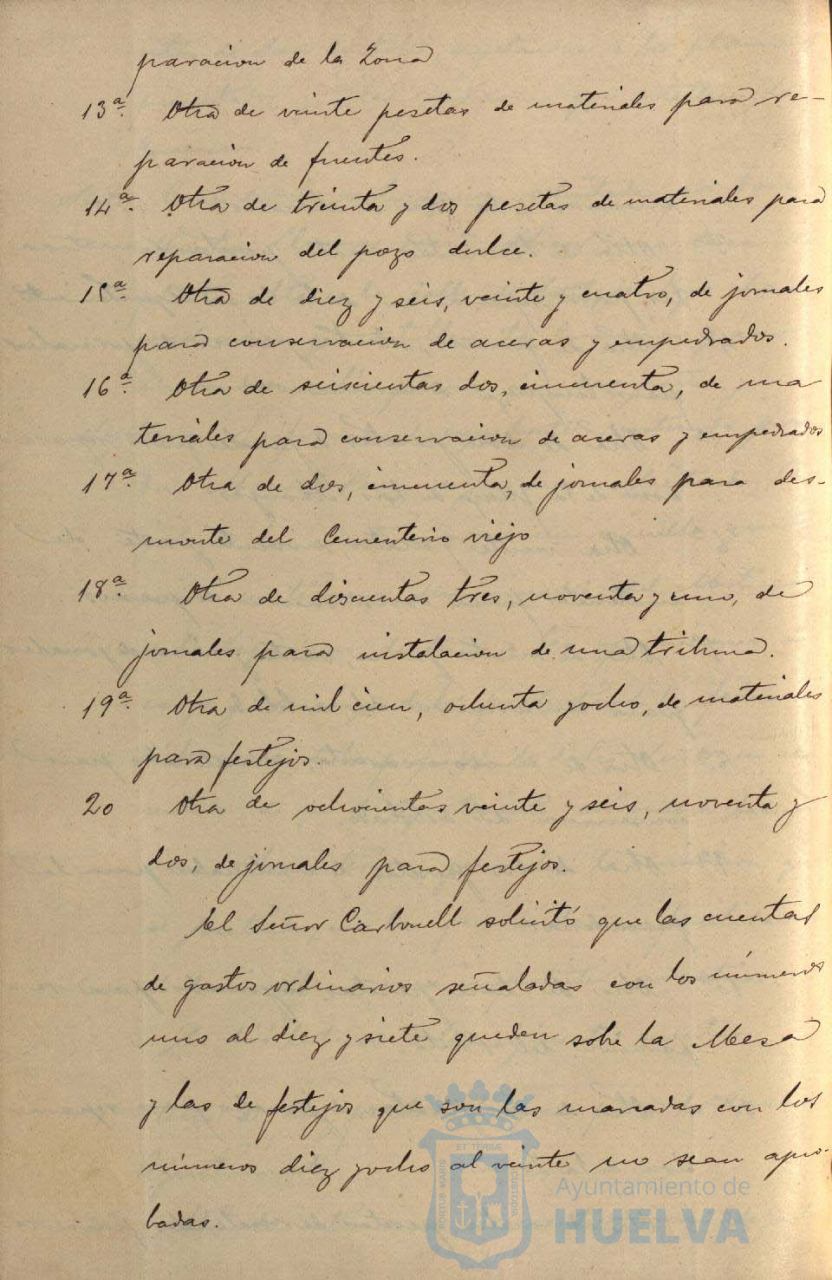 paracion de la Zona
13ª. Otra de veinte pesetas de materiales para re-
paracion de fuentes.
14ª. Otra de treinta y dos pesetas de materiales para
reparacion del pozo dulce.
15ª. Otra de diez y seis, veinte y cuatro, de jornales
para conservacion de aceras y empedrados.
16ª. Otra de seiscientas dos, cincuenta, de ma
teriales para conservacion de aceras y empedrados
17ª. Otra de dos, cincuenta, de jornales para des-
monte del Cementerio viejo
18ª. Otra de doscuentas tres, noventa y uno, de
jornales para instalacion de una tribuna.
19ª. Otra de mil cien, ochenta y ocho, de materiales
para festejos.
20 Otra de ochocientas veinte y seis, noventa y
dos, de jornales para festejos.
El Señor Carbonell solicitó que las cuentas
de gastos ordinarios señaladas con los números
uno al diez y siete queden sobre la Mesa
y las de festejos que son las marcadas con los
números diez y ocho al veinte no sean apro-
badas.
PORTUS MARIS ET TERRÆ CUSTODIA
Ayuntamiento de
HUELVA